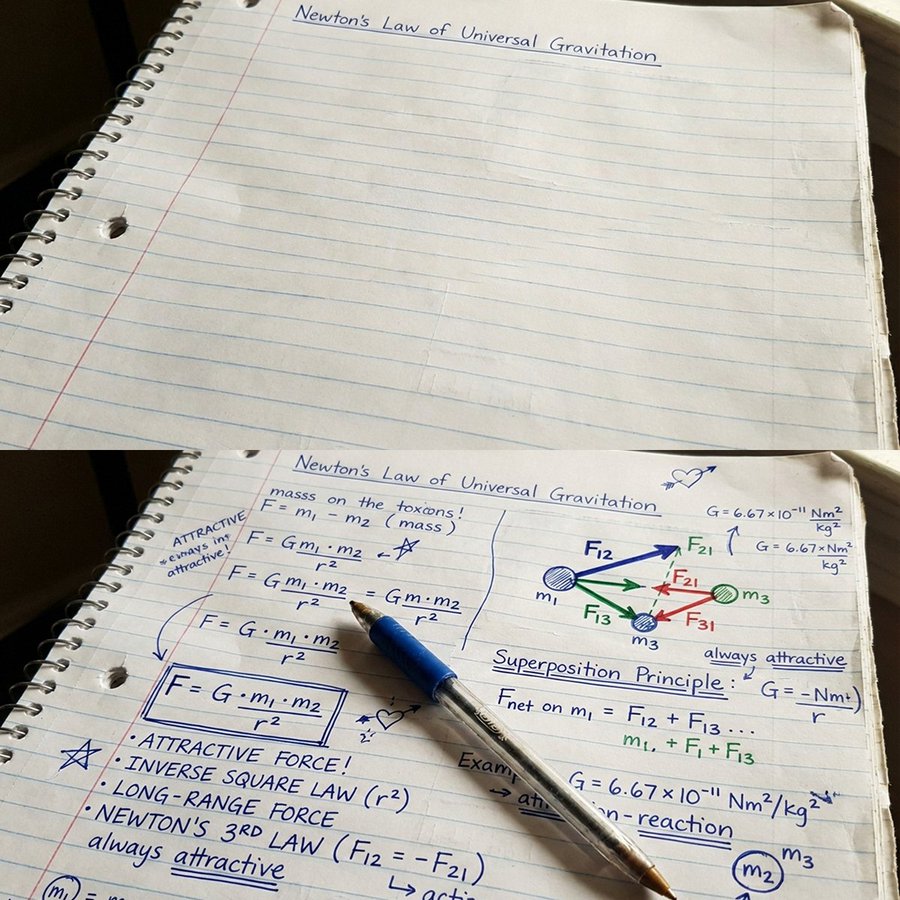 Newton's Law of Universal Gravitation
Newton's Law of Universal Gravitation
masss on the toxcons!
F = m₁ - m₂ (mass)
ATTRACTIVE
attractive!
F = G m₁ · m₂ / r²
F = G m₁ · m₂ / r² = G m · m₂ / r²
F = G · m₁ · m₂ / r²
F = G · m₁ · m₂ / r²
• ATTRACTIVE FORCE!
• INVERSE SQUARE LAW (r²)
• LONG-RANGE FORCE
• NEWTON'S 3RD LAW (F₁₂ = -F₂₁)
always attractive
m₁ =
G = 6.67 × 10⁻¹¹ Nm² / kg²
G = 6.67 × Nm² / kg²
F₁₂
F₂₁
F₂₁
m₁
m₃
F₁₃
F₃₁
m₃
always attractive
Superposition Principle:
G = -Nm²) / r
Fnet on m₁ = F₁₂ + F₁₃ ...
m₁. + F₁ + F₁₃
Examp
G = 6.67 × 10⁻¹¹ Nm²/kg²
→ att on-reaction
m₂ m₃
↳ acti